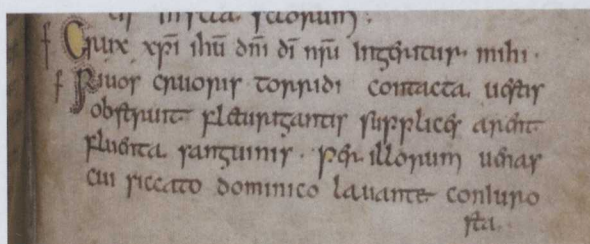 in secla seclorum :
+ Crux xp̄i ihū dn̄i dī nr̄i ingeritur · mihi ·
+ Riuos cruoris torridi contacta uestis
obstruit fletu rigantis supplices arent
fluenta sanguinis · per illorum uenas
cui siccato dominico lauante coniuro
sta ·